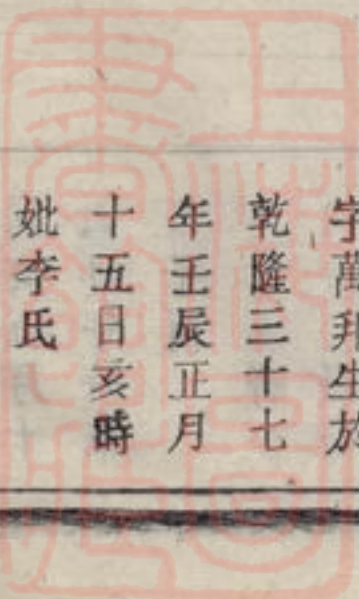 字萬邦生於
乾隆三十七
年壬辰正月
十五日亥時
妣李氏